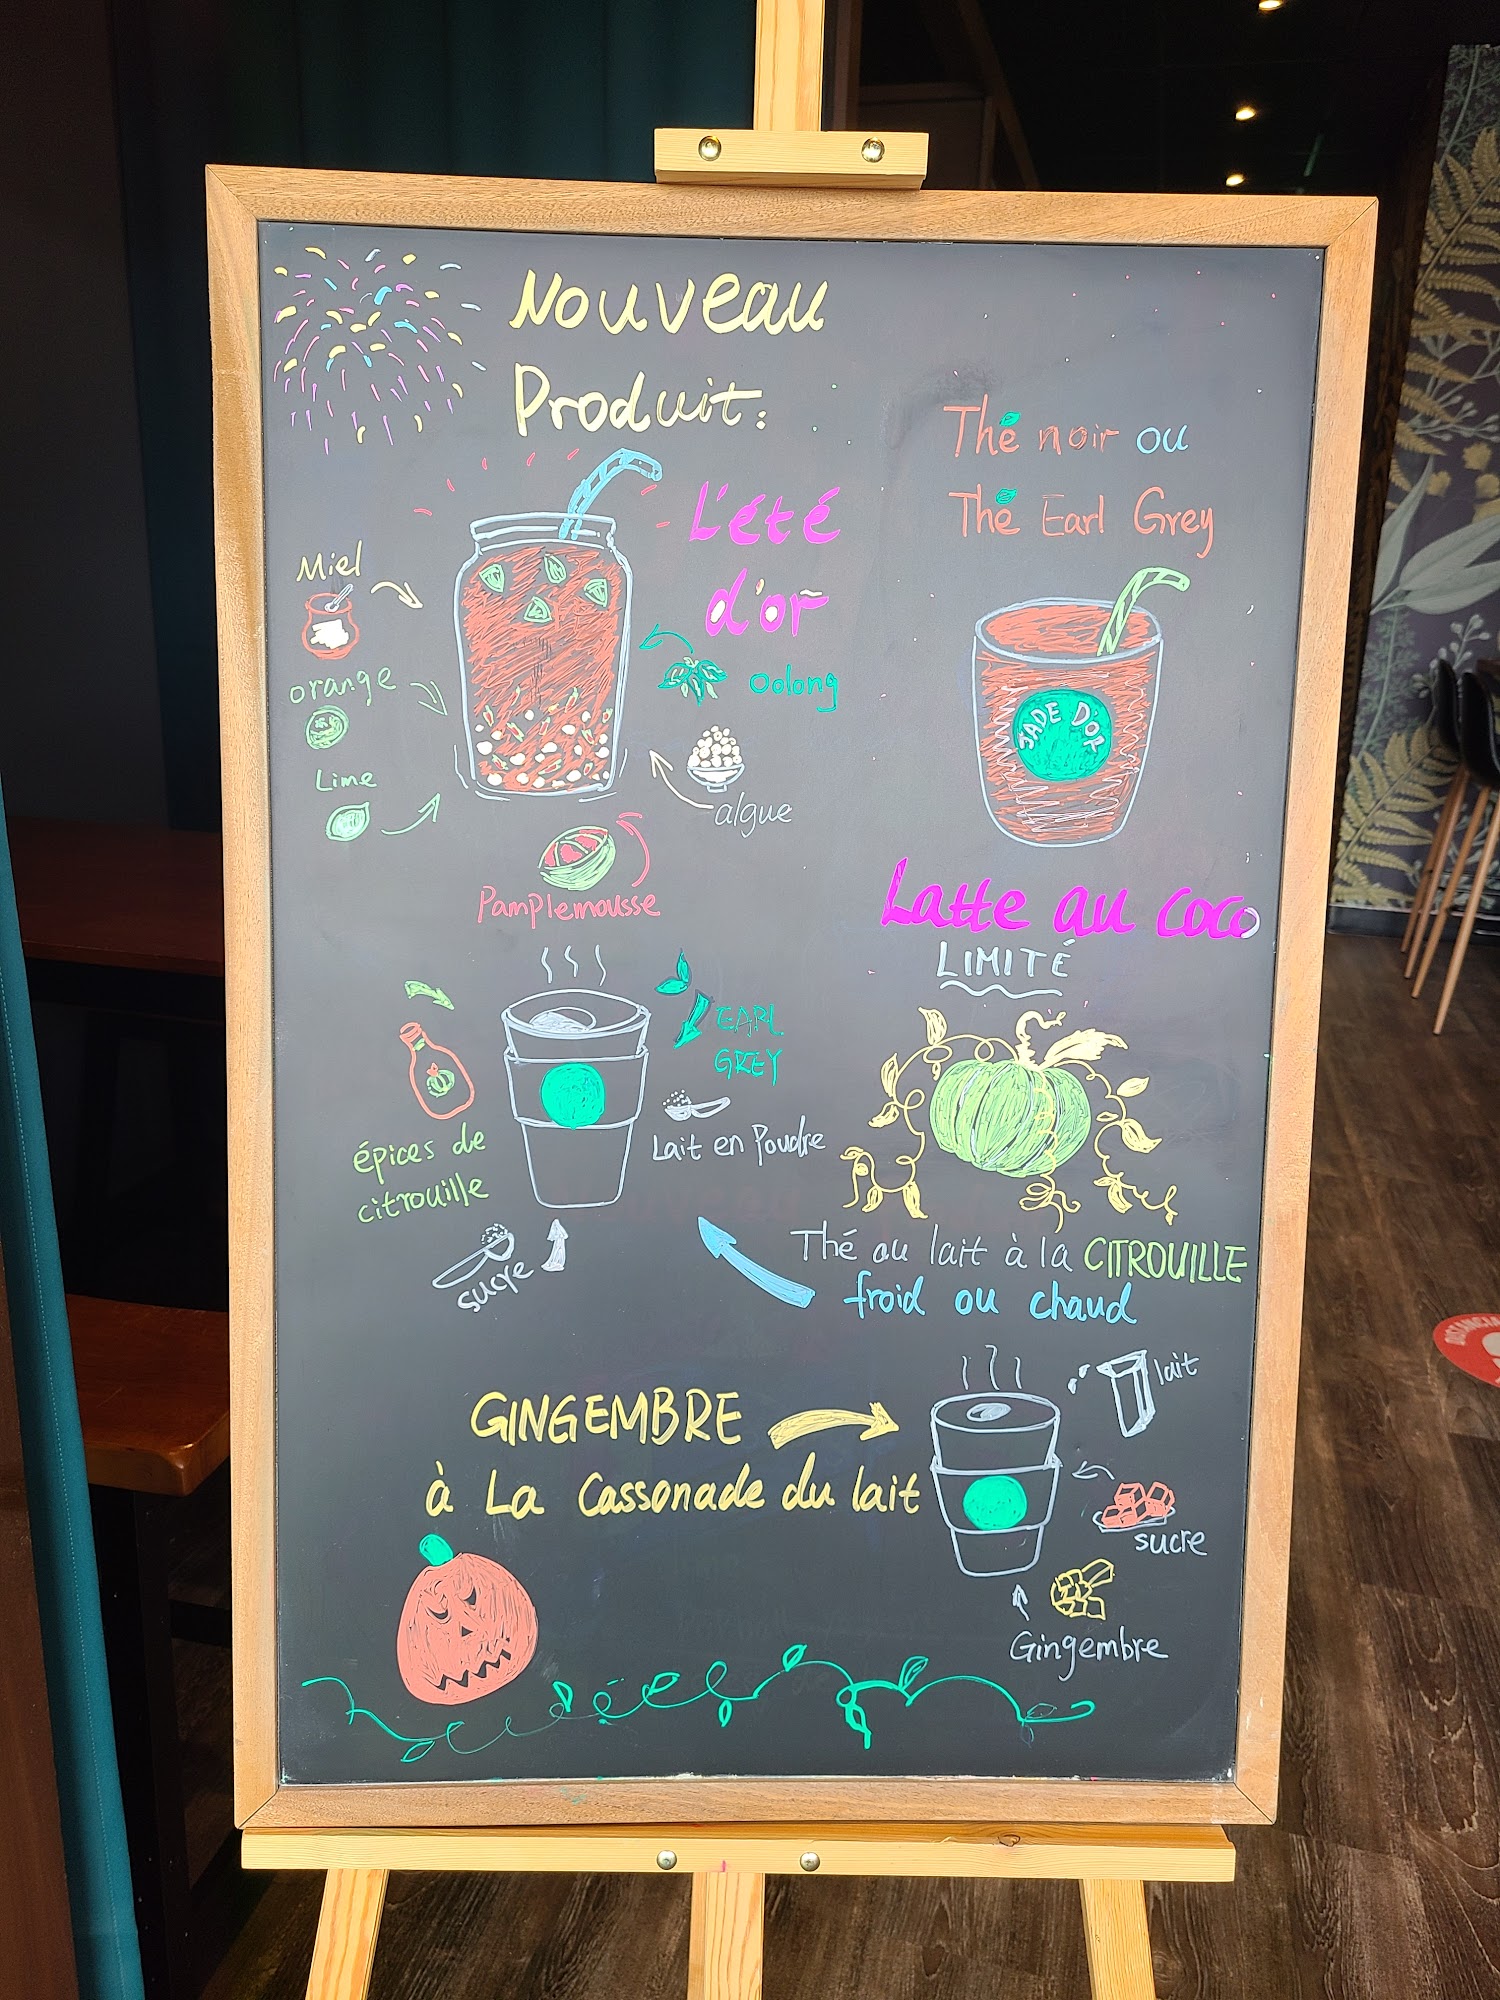 Nouveau
Produit:
L'été
d'or
Miel
orange
Lime
Oolong
algue
Pamplemousse
Thé noir ou
Thé Earl Grey
JADE D'OR
Latte au coco
LIMITÉ
EARL
GREY
Lait en Poudre
épices de
citrouille
sucre
Thé au lait à la CITROUILLE
froid ou chaud
GINGEMBRE
à La Cassonade du lait
lait
sucre
Gingembre